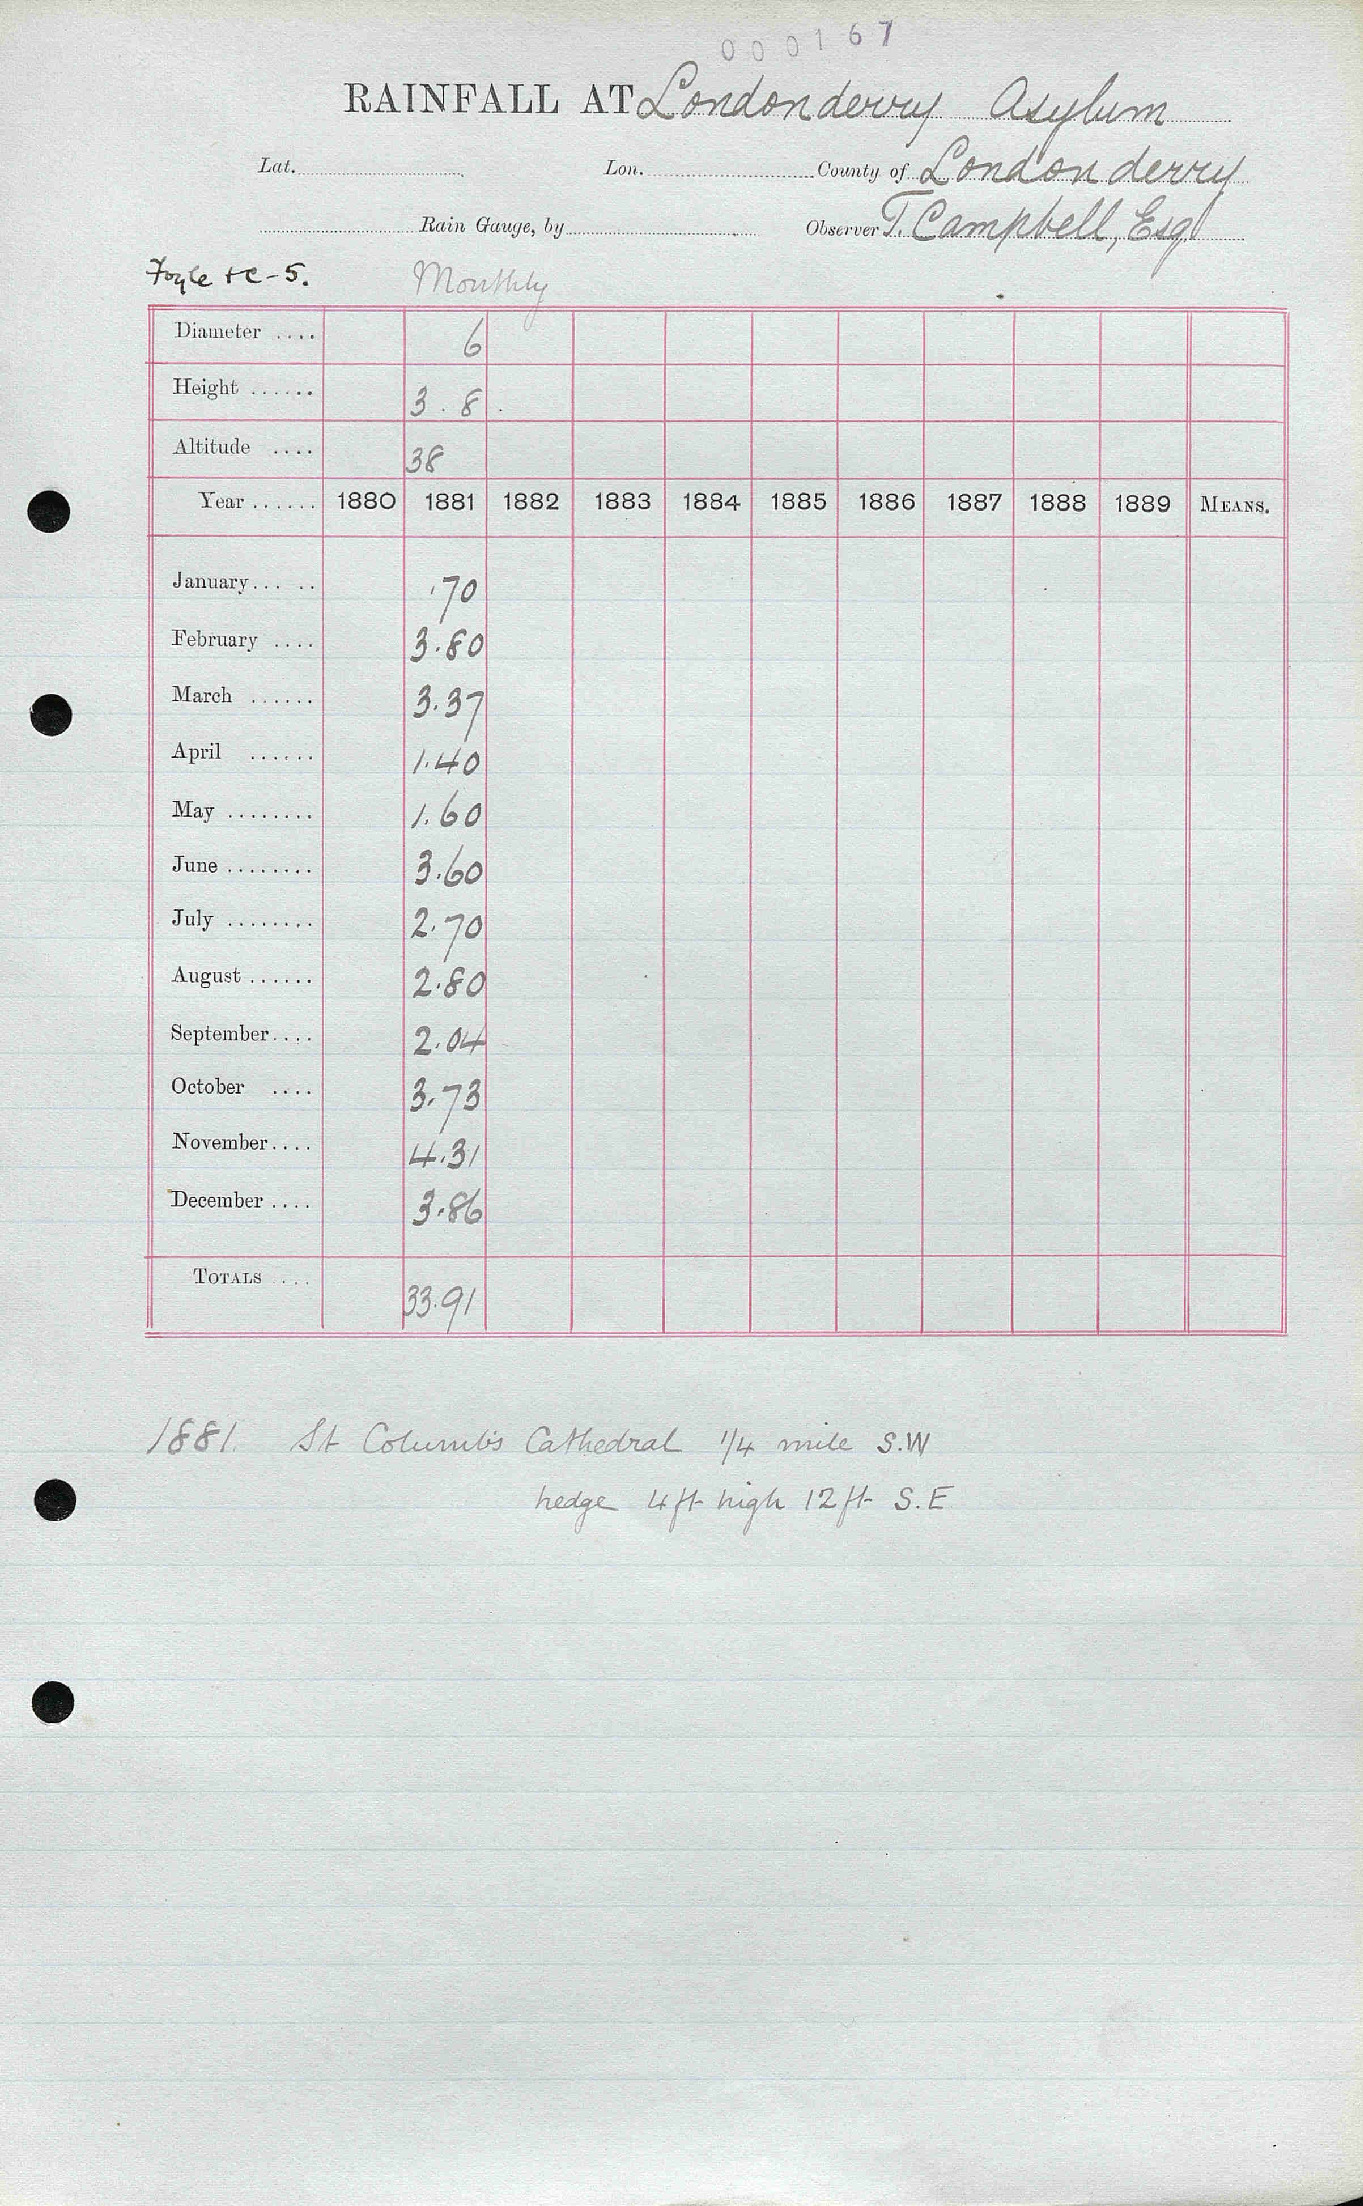 000167
RAINFALL AT Londonderry Asylum
Lat. Lon. County of Londonderry
Rain Gauge, by Observer T. Campbell, Esq
Foyle &c - 5. Monthly
Diameter .... 6
Height ...... 3 . 8
Altitude .... 38
Year ...... 1880 1881 1882 1883 1884 1885 1886 1887 1888 1889 MEANS.
January... .. .70
February .... 3.80
March ...... 3.37
April ...... 1.40
May ........ 1.60
June ........ 3.60
July ........ 2.70
August ...... 2.80
September.... 2.04
October .... 3.73
November.... 4.31
December .... 3.86
TOTALS .... 33.91
1881. St Columb's Cathedral 1/4 mile S.W
hedge 4ft high 12ft S.E